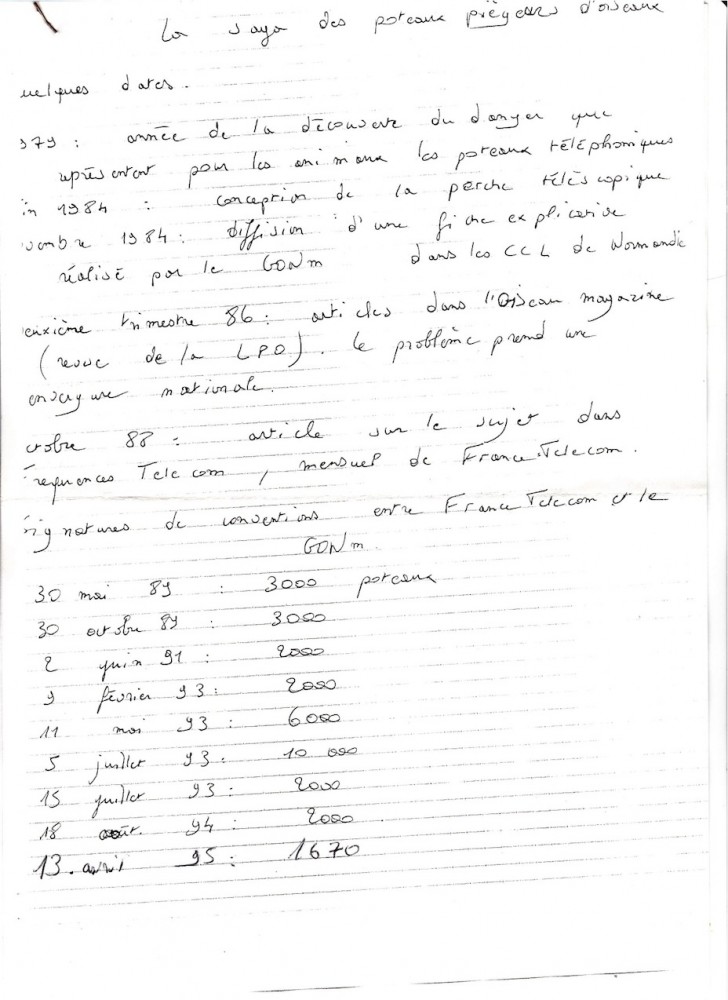 La saga des poteaux piègeurs d'oiseaux
uelques dates.
979 : année de la découverte du danger que
représentent pour les animaux les poteaux téléphoniques
in 1984 : conception de la perche télescopique
vembre 1984 : diffision d'une fiche explicative
réalisé par le GONm dans les CCL de Normandie
euxième trimestre 86 : articles dans l'Oiseau magazine
(revue de la LPO). Le problème prend une
envergure nationale.
ctobre 88 : article sur le sujet dans
Fréquences Telecom, mensuel de France Telecom.
signatures de conventions entre France Telecom et le
GONm
30 mai 89 : 3000 poteaux
30 octobre 89 : 3000
2 juin 91 : 2000
9 février 93 : 2000
11 mai 93 : 6000
5 juillet 93 : 10 000
15 juillet 93 : 2000
18 août. 94 : 2000
13. avril 95 : 1670